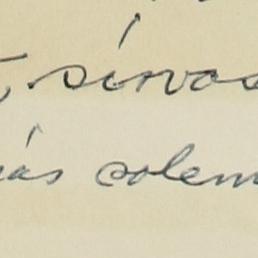 sirvas
más solem